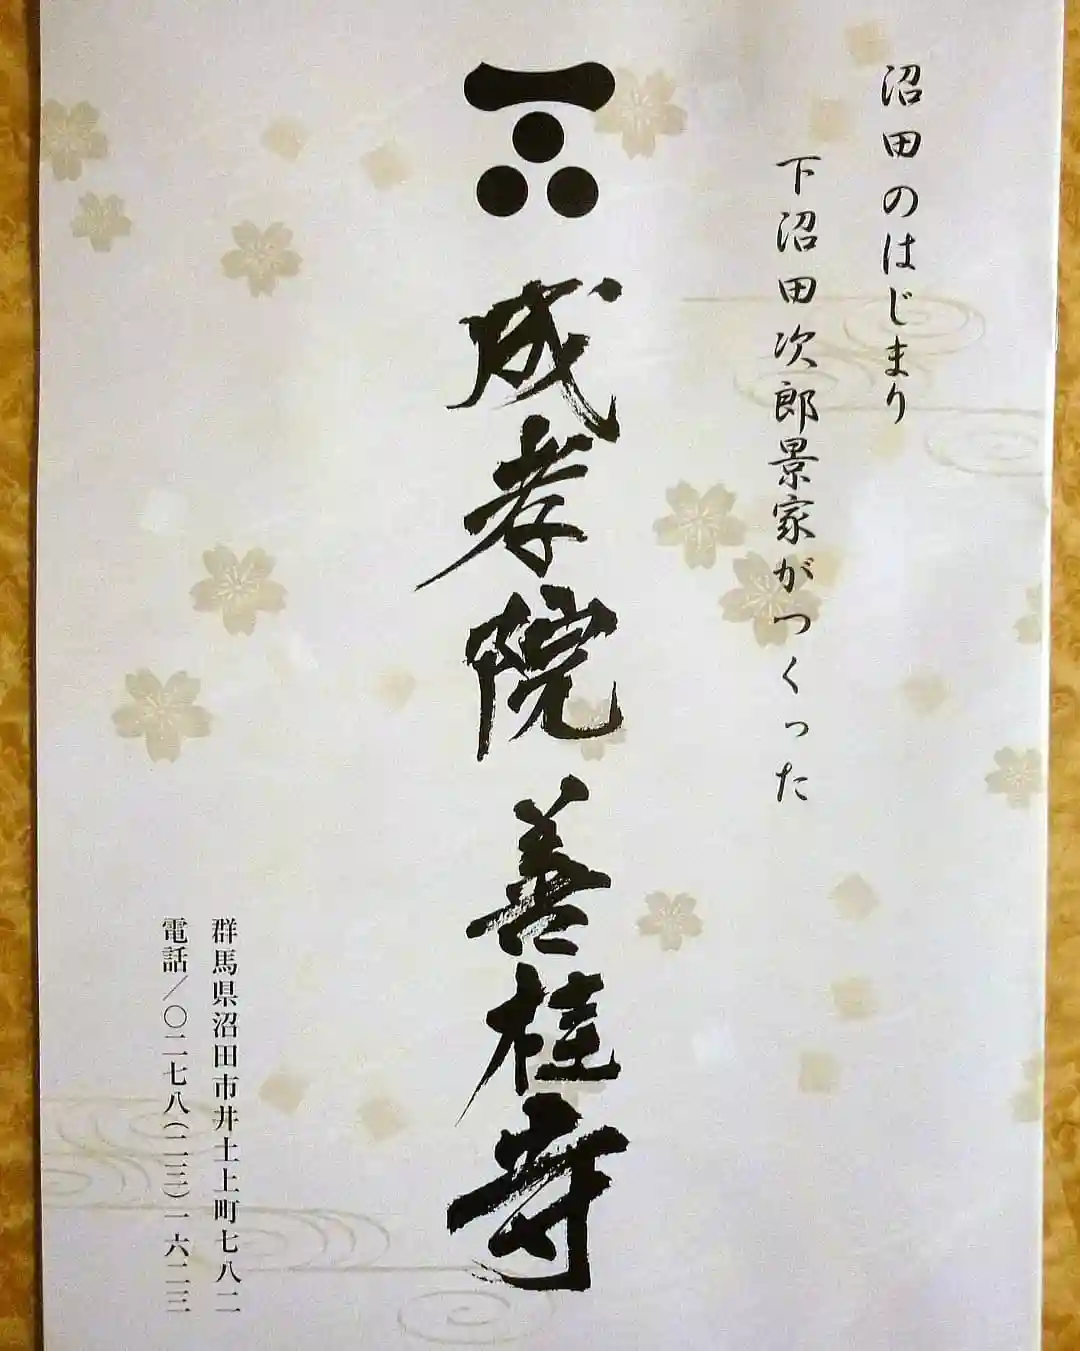 沼田のはじまり
下沼田次郎景家がつくった
成孝院善桂寺
群馬県沼田市井土上町七八二
電話／〇二七八(二三)一六二三